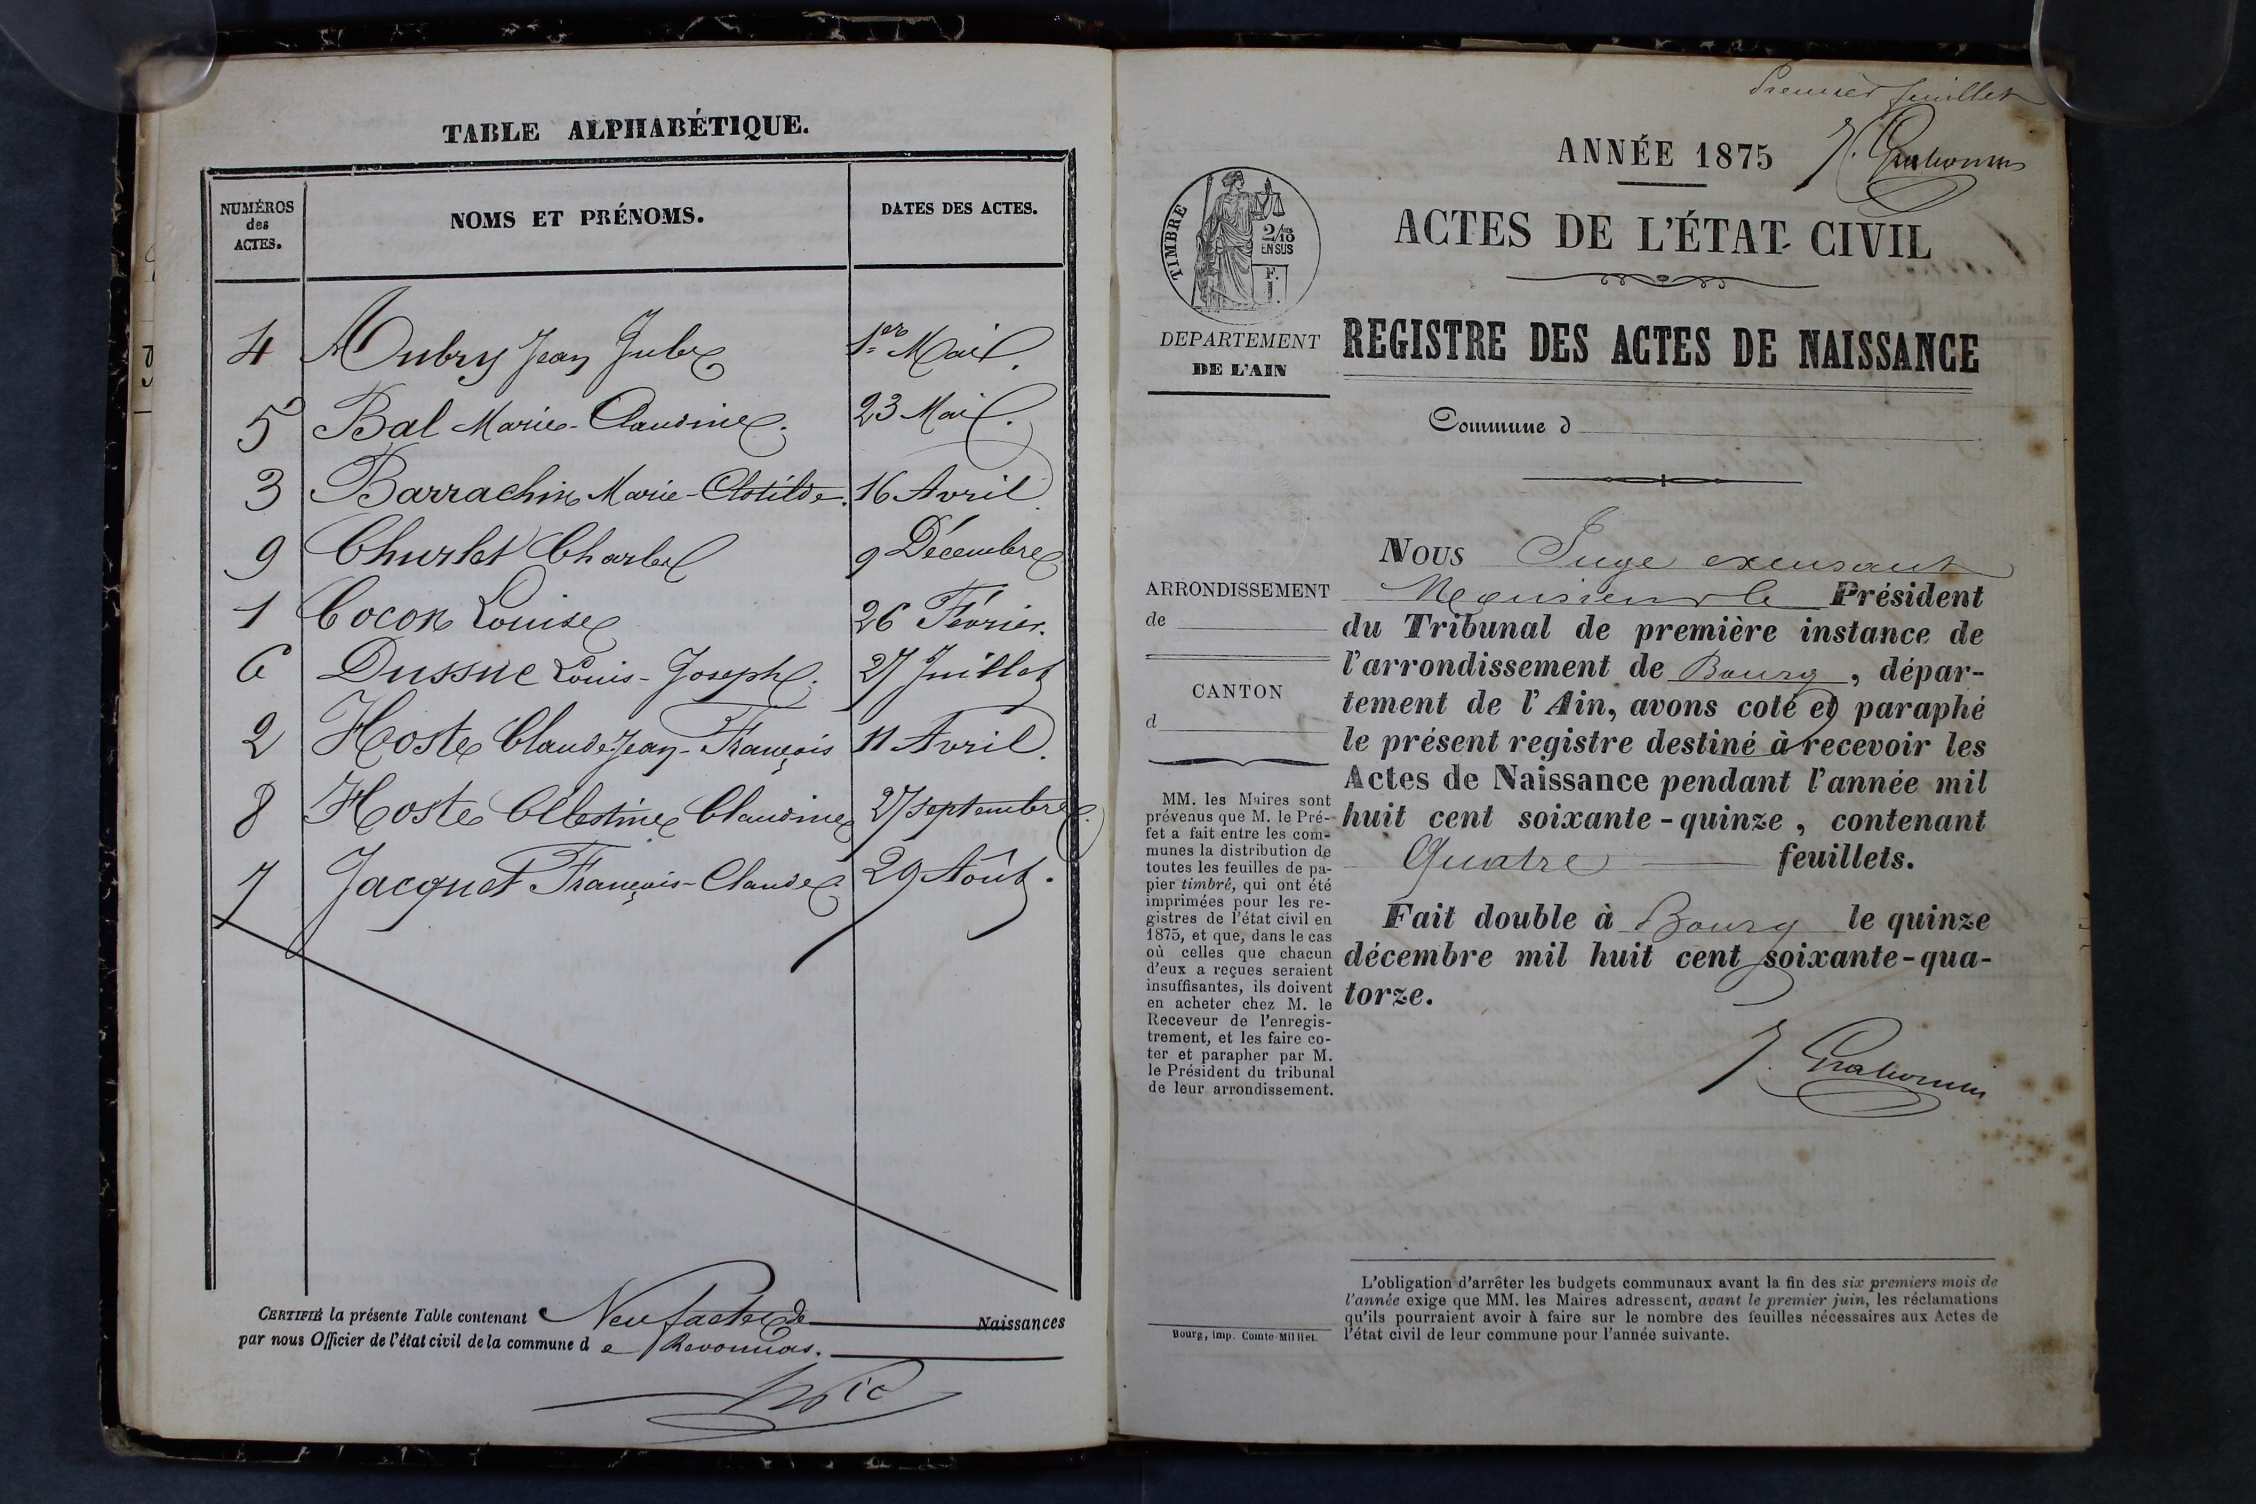 TABLE ALPHABÉTIQUE.
NUMÉROS
des
ACTES.
NOMS ET PRÉNOMS.
DATES DES ACTES.
4 Aubry Jean Jules 1er Mai
5 Bal Marie-Claudine. 23 Mai.
3 Barrachin Marie-Clotilde. 16 Avril.
9 Churlet Charles 9 Décembre
1 Cocon Louise 26 Février.
6 Dussuc Louis-Joseph. 27 Juillet
2 Hoste Claude Jean-François 11 Avril.
8 Hoste Célestine Claudine 27 septembre.
7 Jacquet François-Claude 29 Août.
CERTIFIÉ la présente Table contenant Neuf actes de Naissances
par nous Officier de l'état civil de la commune de Revonnas.
Premier feuillet
ANNÉE 1875
ACTES DE L'ÉTAT CIVIL
TIMBRE
2/10 EN SUS
F.
1.
DEPARTEMENT
DE L'AIN
REGISTRE DES ACTES DE NAISSANCE
Commune d
ARRONDISSEMENT
de
CANTON
d
MM. les Maires sont
prévenus que M. le Pré-
fet a fait entre les com-
munes la distribution de
toutes les feuilles de pa-
pier timbré, qui ont été
imprimées pour les re-
gistres de l'état civil en
1875, et que, dans le cas
où celles que chacun
d'eux a reçues seraient
insuffisantes, ils doivent
en acheter chez M. le
Receveur de l'enregis-
trement, et les faire co-
ter et parapher par M.
le Président du tribunal
de leur arrondissement.
Bourg, imp. Comte-Milliet.
NOUS Juge excusant
Monsieur le Président
du Tribunal de première instance de
l'arrondissement de Bourg, dépar-
tement de l'Ain, avons coté et paraphé
le présent registre destiné à recevoir les
Actes de Naissance pendant l'année mil
huit cent soixante-quinze, contenant
Quatre feuillets.
Fait double à Bourg le quinze
décembre mil huit cent soixante-qua-
torze.
L'obligation d'arrêter les budgets communaux avant la fin des six premiers mois de
l'année exige que MM. les Maires adressent, avant le premier juin, les réclamations
qu'ils pourraient avoir à faire sur le nombre des feuilles nécessaires aux Actes de
l'état civil de leur commune pour l'année suivante.